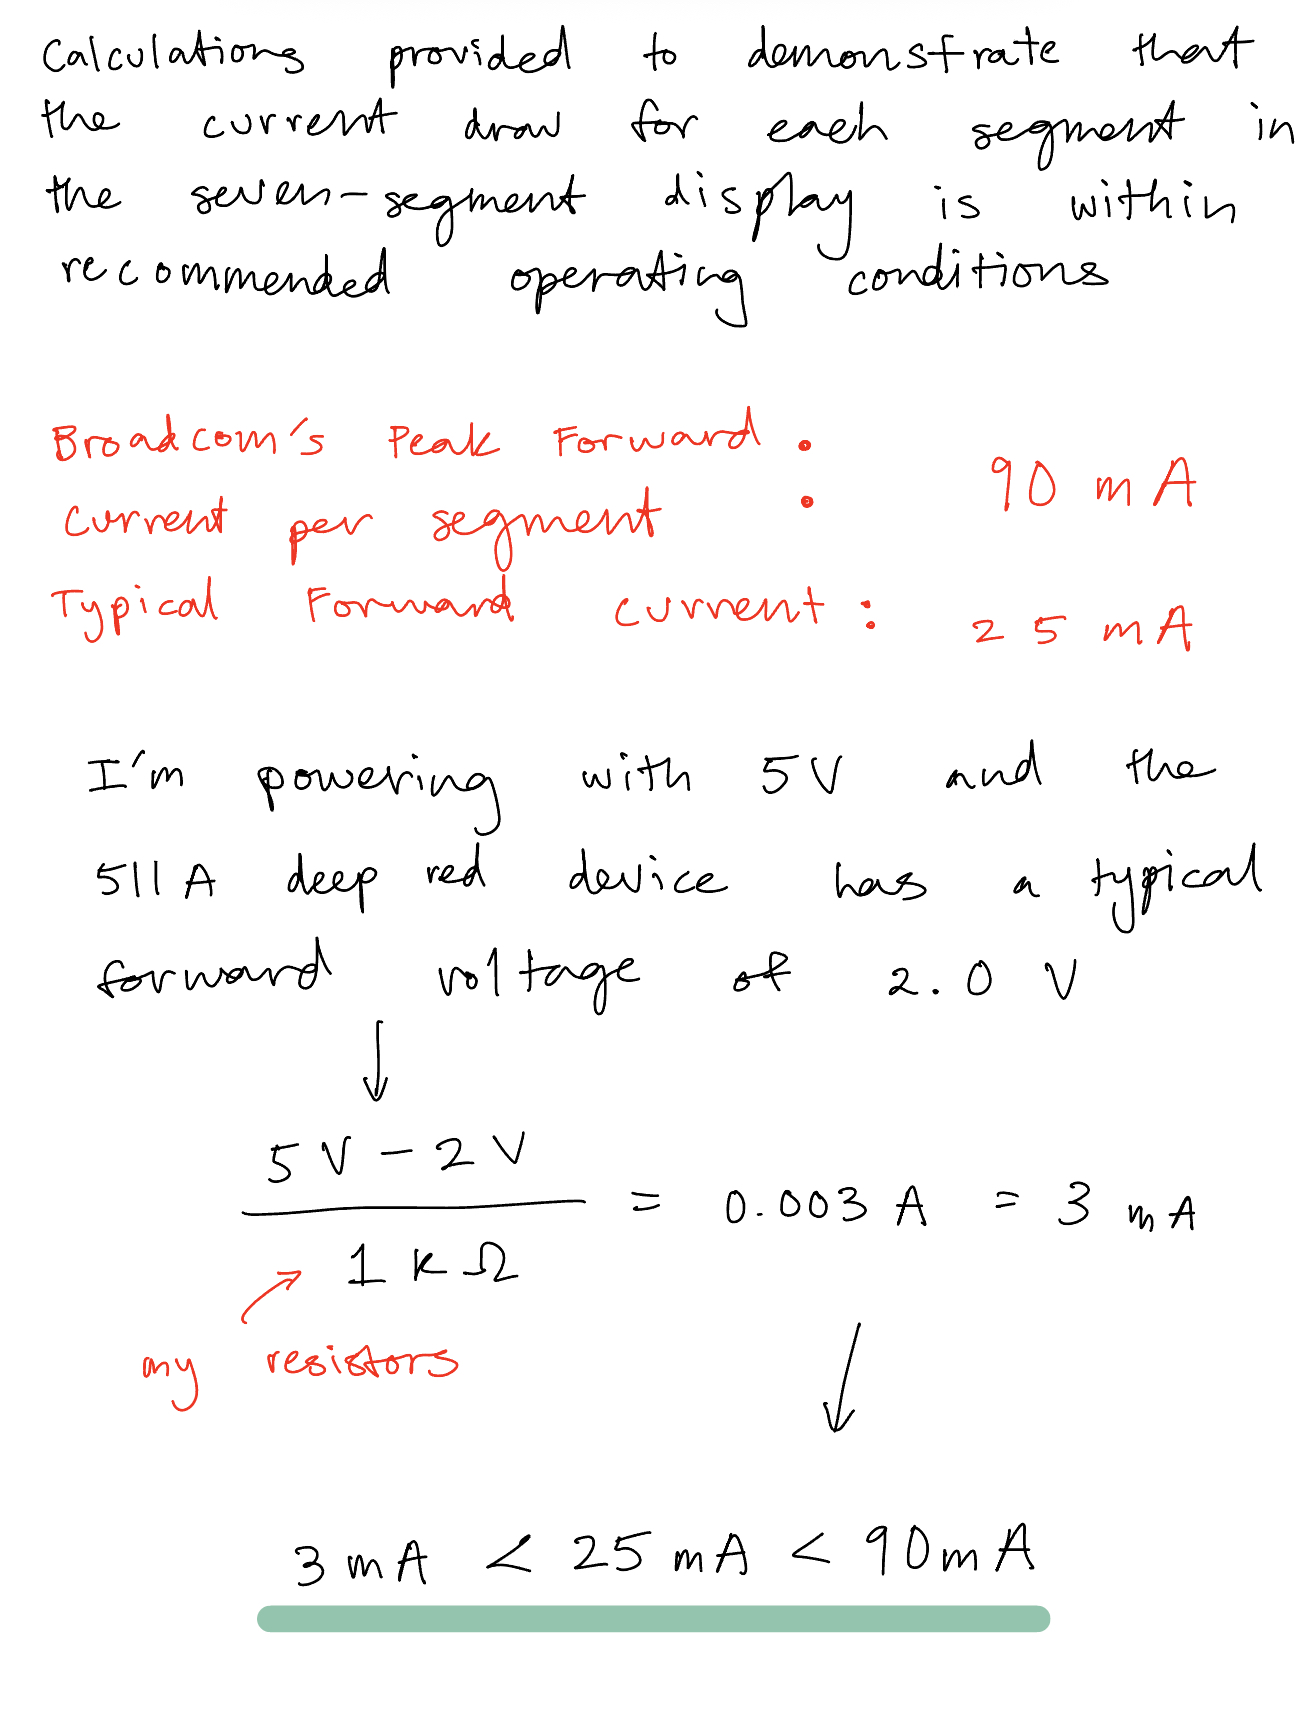 Calculations provided to demonstrate that
the current draw for each segment in
the seven-segment display is within
recommended operating conditions
Broadcom's Peak Forward :
current per segment
90 mA
Typical Forward current : 25 mA
I'm powering with 5V and the
511A deep red device has a typical
forward voltage of 2.0 V
↓
5V - 2V
1 kΩ
= 0.003 A = 3 mA
my resistors
3 mA < 25 mA < 90mA